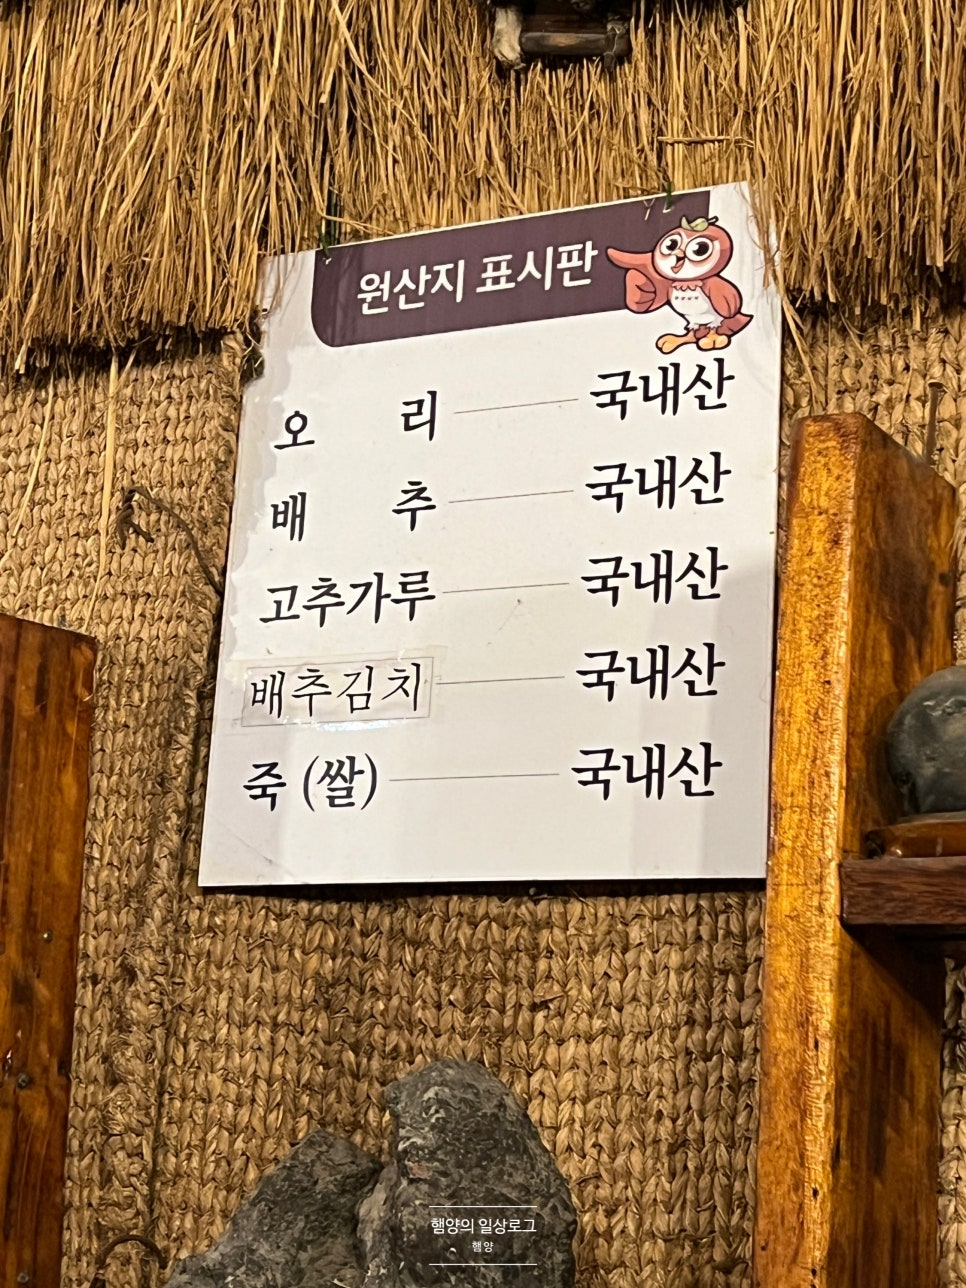 원산지 표시판
오 리 국내산
배 추 국내산
고추가루 국내산
배추김치 국내산
죽 (쌀) 국내산
햄양의 일상로그
햄양